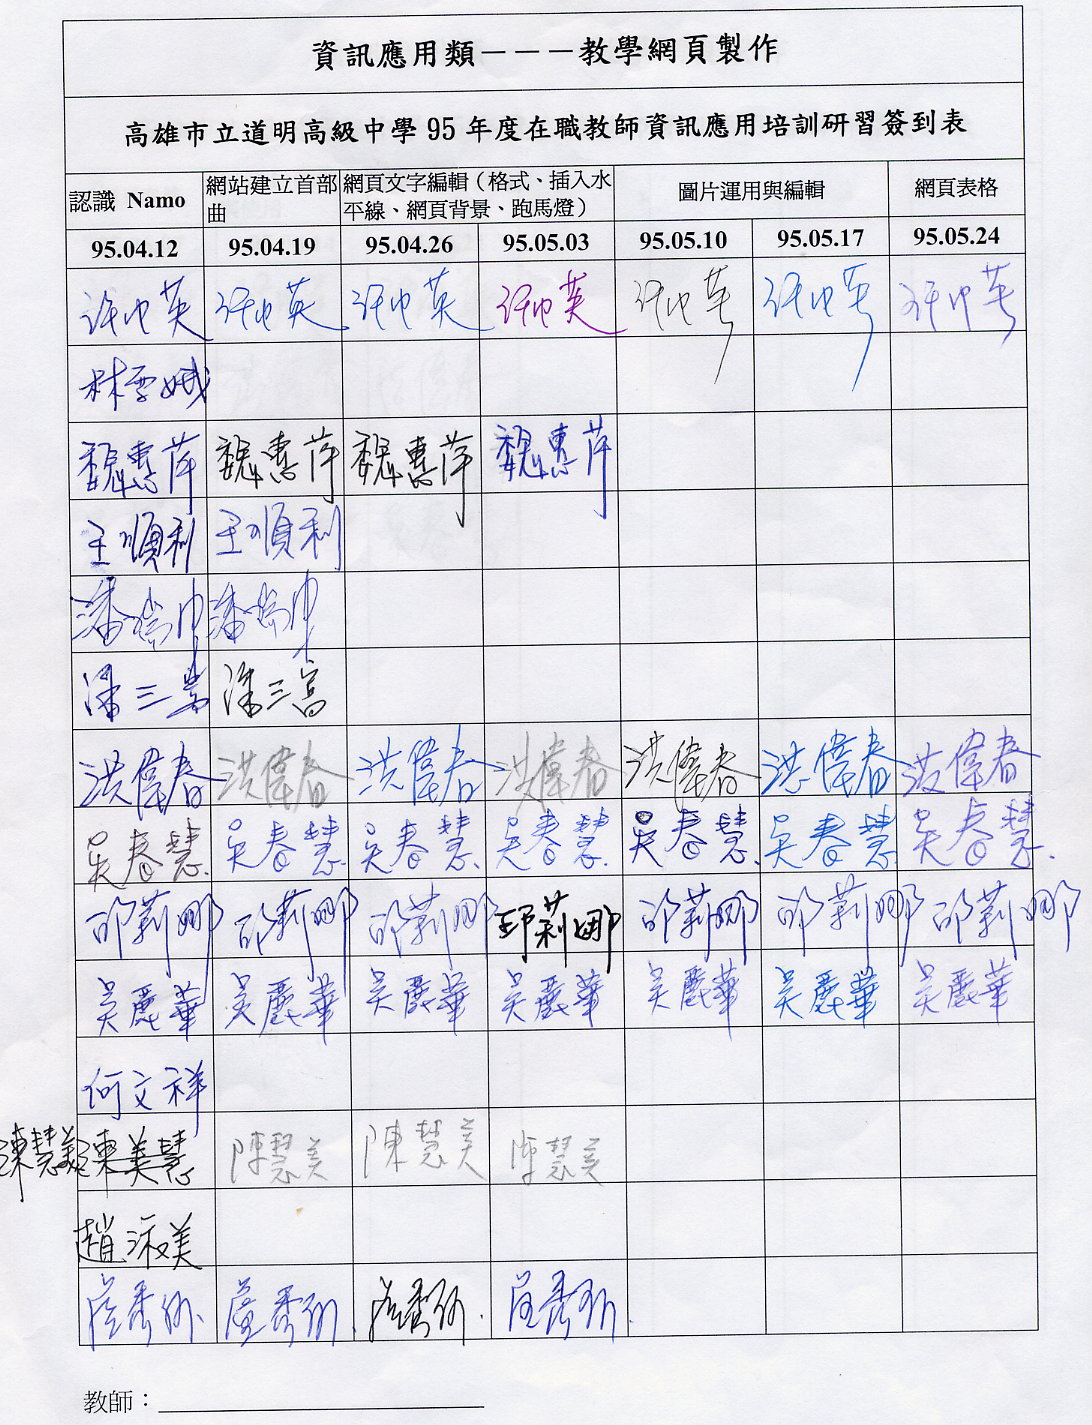 資訊應用類－－－教學網頁製作
高雄市立道明高級中學 95 年度在職教師資訊應用培訓研習簽到表
認識 Namo 網站建立首部曲 網頁文字編輯（格式、插入水平線、網頁背景、跑馬燈） 圖片運用與編輯 網頁表格
95.04.12 95.04.19 95.04.26 95.05.03 95.05.10 95.05.17 95.05.24
許巾英 許巾英 許巾英 許巾英 許巾英 許巾英 許巾英
林雪娥
魏惠萍 魏惠萍 魏惠萍 魏惠萍
王順利 王順利
潘瑞巾 潘瑞巾
潘三 潘三
洪偉春 洪偉春 洪偉春 洪偉春 洪偉春 洪偉春 洪偉春
吳春慧 吳春慧 吳春慧 吳春慧 吳春慧 吳春慧 吳春慧
邱莉娜 邱莉娜 邱莉娜 邱莉娜 邱莉娜 邱莉娜 邱莉娜
吳麗華 吳麗華 吳麗華 吳麗華 吳麗華 吳麗華 吳麗華
何文祥
陳慧美 陳美慧 陳慧美 陳慧美 陳慧美
趙淑美
教師：